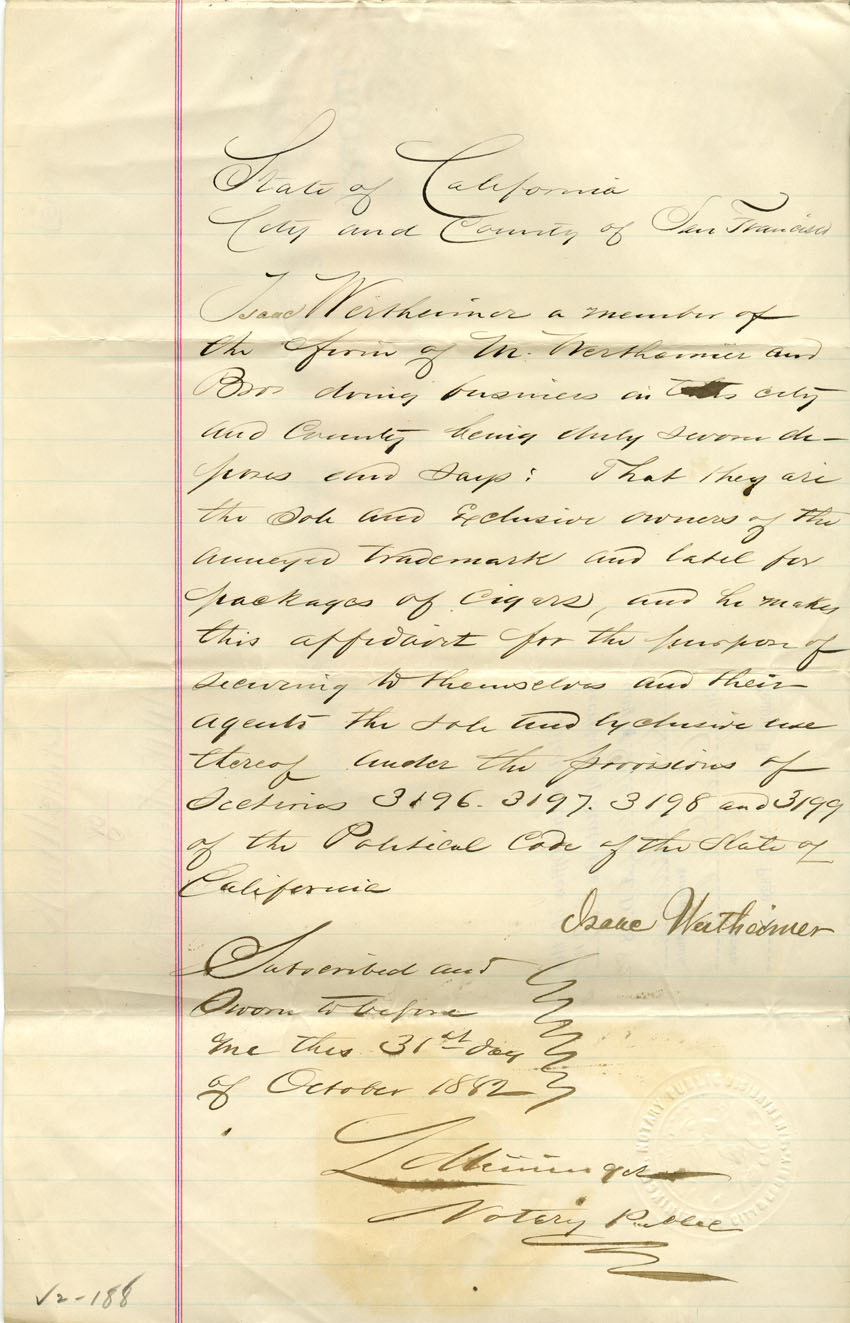 State of California
City and County of San Francisco
Isaac Wertheimer a member of
the firm of M. Wertheimer and
Bros doing business in this city
and County being duly sworn de-
poses and says: That they are
the sole and Exclusive owners of the
annexed trademark and label for
packages of Cigars, and he makes
this affidavit for the purpose of
securing to themselves and their
agents the sole and exclusive use
thereof under the provisions of
Sections 3196. 3197. 3198 and 3199
of the Political Code of the State of
California
Isaac Wertheimer
Subscribed and
Sworn to before
me this 31st day
of October 1882
Notary Public
NOTARY PUBLIC
√2-188